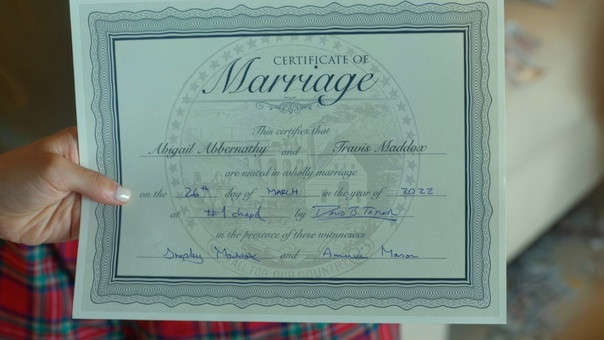 CERTIFICATE OF
Marriage
This certifies that
Abigail Abbernathy and Travis Maddox
are united in wholly marriage
on the 26th day of MARCH in the year of 2022
at #1 chapel by
in the presence of those witnesses
Shepley Maddox and America Mason
ALL FOR OUR COUNTRY